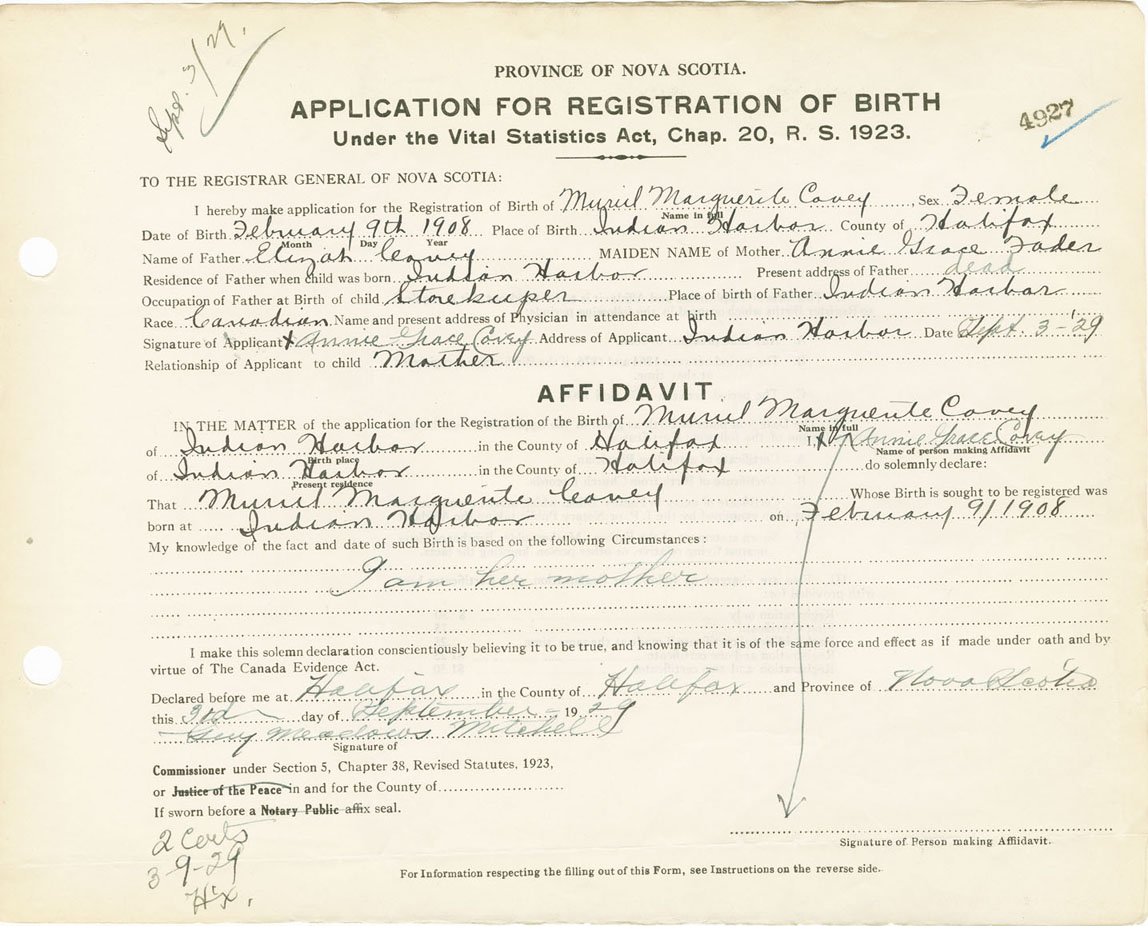 Sept. 3/29.
PROVINCE OF NOVA SCOTIA.
APPLICATION FOR REGISTRATION OF BIRTH
4927
Under the Vital Statistics Act, Chap. 20, R. S. 1923.
TO THE REGISTRAR GENERAL OF NOVA SCOTIA:
I hereby make application for the Registration of Birth of Muriel Marguerite Covey Sex Female
Name in full
Date of Birth February 9th 1908 Place of Birth Indian Harbor County of Halifax
Month Day Year
Name of Father Elizah Covey MAIDEN NAME of Mother Annie Grace Fader
Residence of Father when child was born Indian Harbor Present address of Father dead
Occupation of Father at Birth of child Storekeeper Place of birth of Father Indian Harbor
Race Canadian Name and present address of Physician in attendance at birth
Signature of Applicant X Annie Grace Covey Address of Applicant Indian Harbor Date Sept. 3-'29
Relationship of Applicant to child Mother
AFFIDAVIT
IN THE MATTER of the application for the Registration of the Birth of Muriel Marguerite Covey
Name in full
of Indian Harbor in the County of Halifax I, X Annie Grace Covey
Birth place Name of person making Affidavit
of Indian Harbor in the County of Halifax do solemnly declare:
Present residence
That Muriel Marguerite Covey Whose Birth is sought to be registered was
born at Indian Harbor on February 9/1908
My knowledge of the fact and date of such Birth is based on the following Circumstances:
I am her mother
I make this solemn declaration conscientiously believing it to be true, and knowing that it is of the same force and effect as if made under oath and by
virtue of The Canada Evidence Act.
Declared before me at Halifax in the County of Halifax and Province of Nova Scotia
this 3rd day of September - 1929
Guy Meadows Mitchell
Signature of
Commissioner under Section 5, Chapter 38, Revised Statutes, 1923,
or Justice of the Peace in and for the County of
If sworn before a Notary Public affix seal.
2 Certs
3-9-29
Hx.
Signature of Person making Affiidavit.
For Information respecting the filling out of this Form, see Instructions on the reverse side.